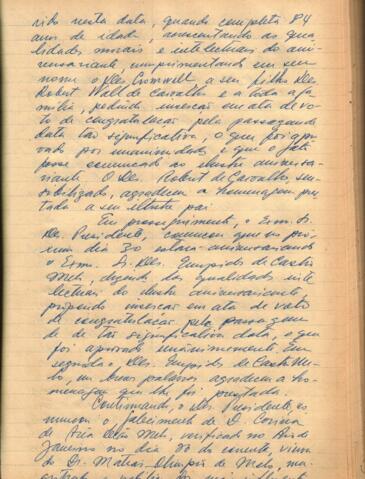 rido nesta data, quando completa 84
anos de idade, acrescentando as qua-
lidades morais e intelectuais do ani-
versariante, cumprimentando em seu
nome o Des. Cromwell a seu filho Des.
Robert Wall de Carvalho e a toda a fa-
milia, pedindo inserção em ata de vo-
to de congratulação pela passagem de
data tão significativa, o que foi apro-
vado por unanimidade e que o fato
fosse comunicado ao ilustre aniversa-
riante. O Des. Robert de Carvalho, sen-
sibilizado, agradeceu a homenagem pres-
tada a seu ilustre pai.
Em prosseguimento, o Exm. Sr.
Des. Presidente, comunicou que no pró-
ximo dia 30 estará aniversariando
o Exm. Sr. Des. Eurípides de Castro
Melo, dizendo das qualidades inte-
lectuais do ilustre aniversariante,
propondo inserção em ata de voto
de congratulação pela passagem
de tão significativa data, o que
foi aprovado unanimemente. Em
seguida o Des. Eurípides de Castro Me-
lo, em breves palavras agradeceu a ho-
menagem que lhe foi prestada.
Continuando, o Des. Presidente, co-
municou o falecimento de D. Corina
de Melo, verificado no Rio de
Janeiro no dia do corrente, viuva
do Dr. Matias Olimpio de Melo, ma-